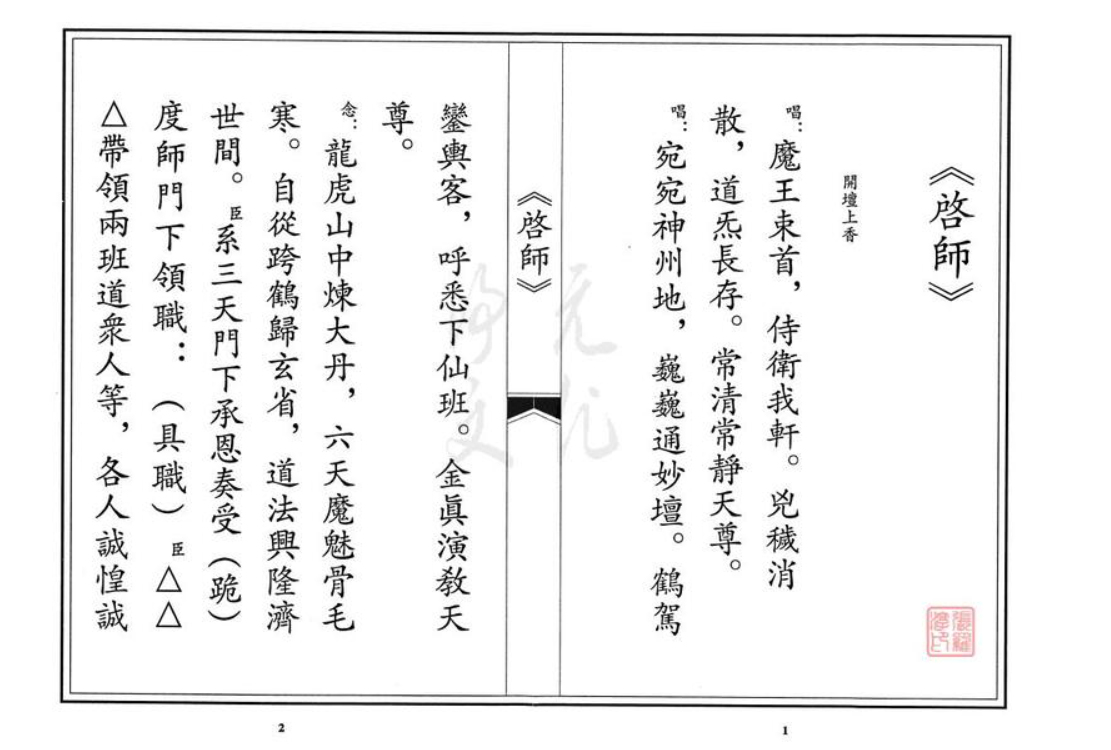 《啓師》
開壇上香
唱：魔王束首，侍衛我軒。兇穢消
散，道炁長存。常清常靜天尊。
唱：宛宛神州地，巍巍通妙壇。鶴駕
1
《啓師》
鑾輿客，呼悉下仙班。金眞演教天
尊。
念：龍虎山中煉大丹，六天魔魅骨毛
寒。自從跨鶴歸玄省，道法興隆濟
世間。臣系三天門下承恩奏受（跪）
度師門下領職：（具職）臣△△
△帶領兩班道衆人等，各人誠惶誠
2